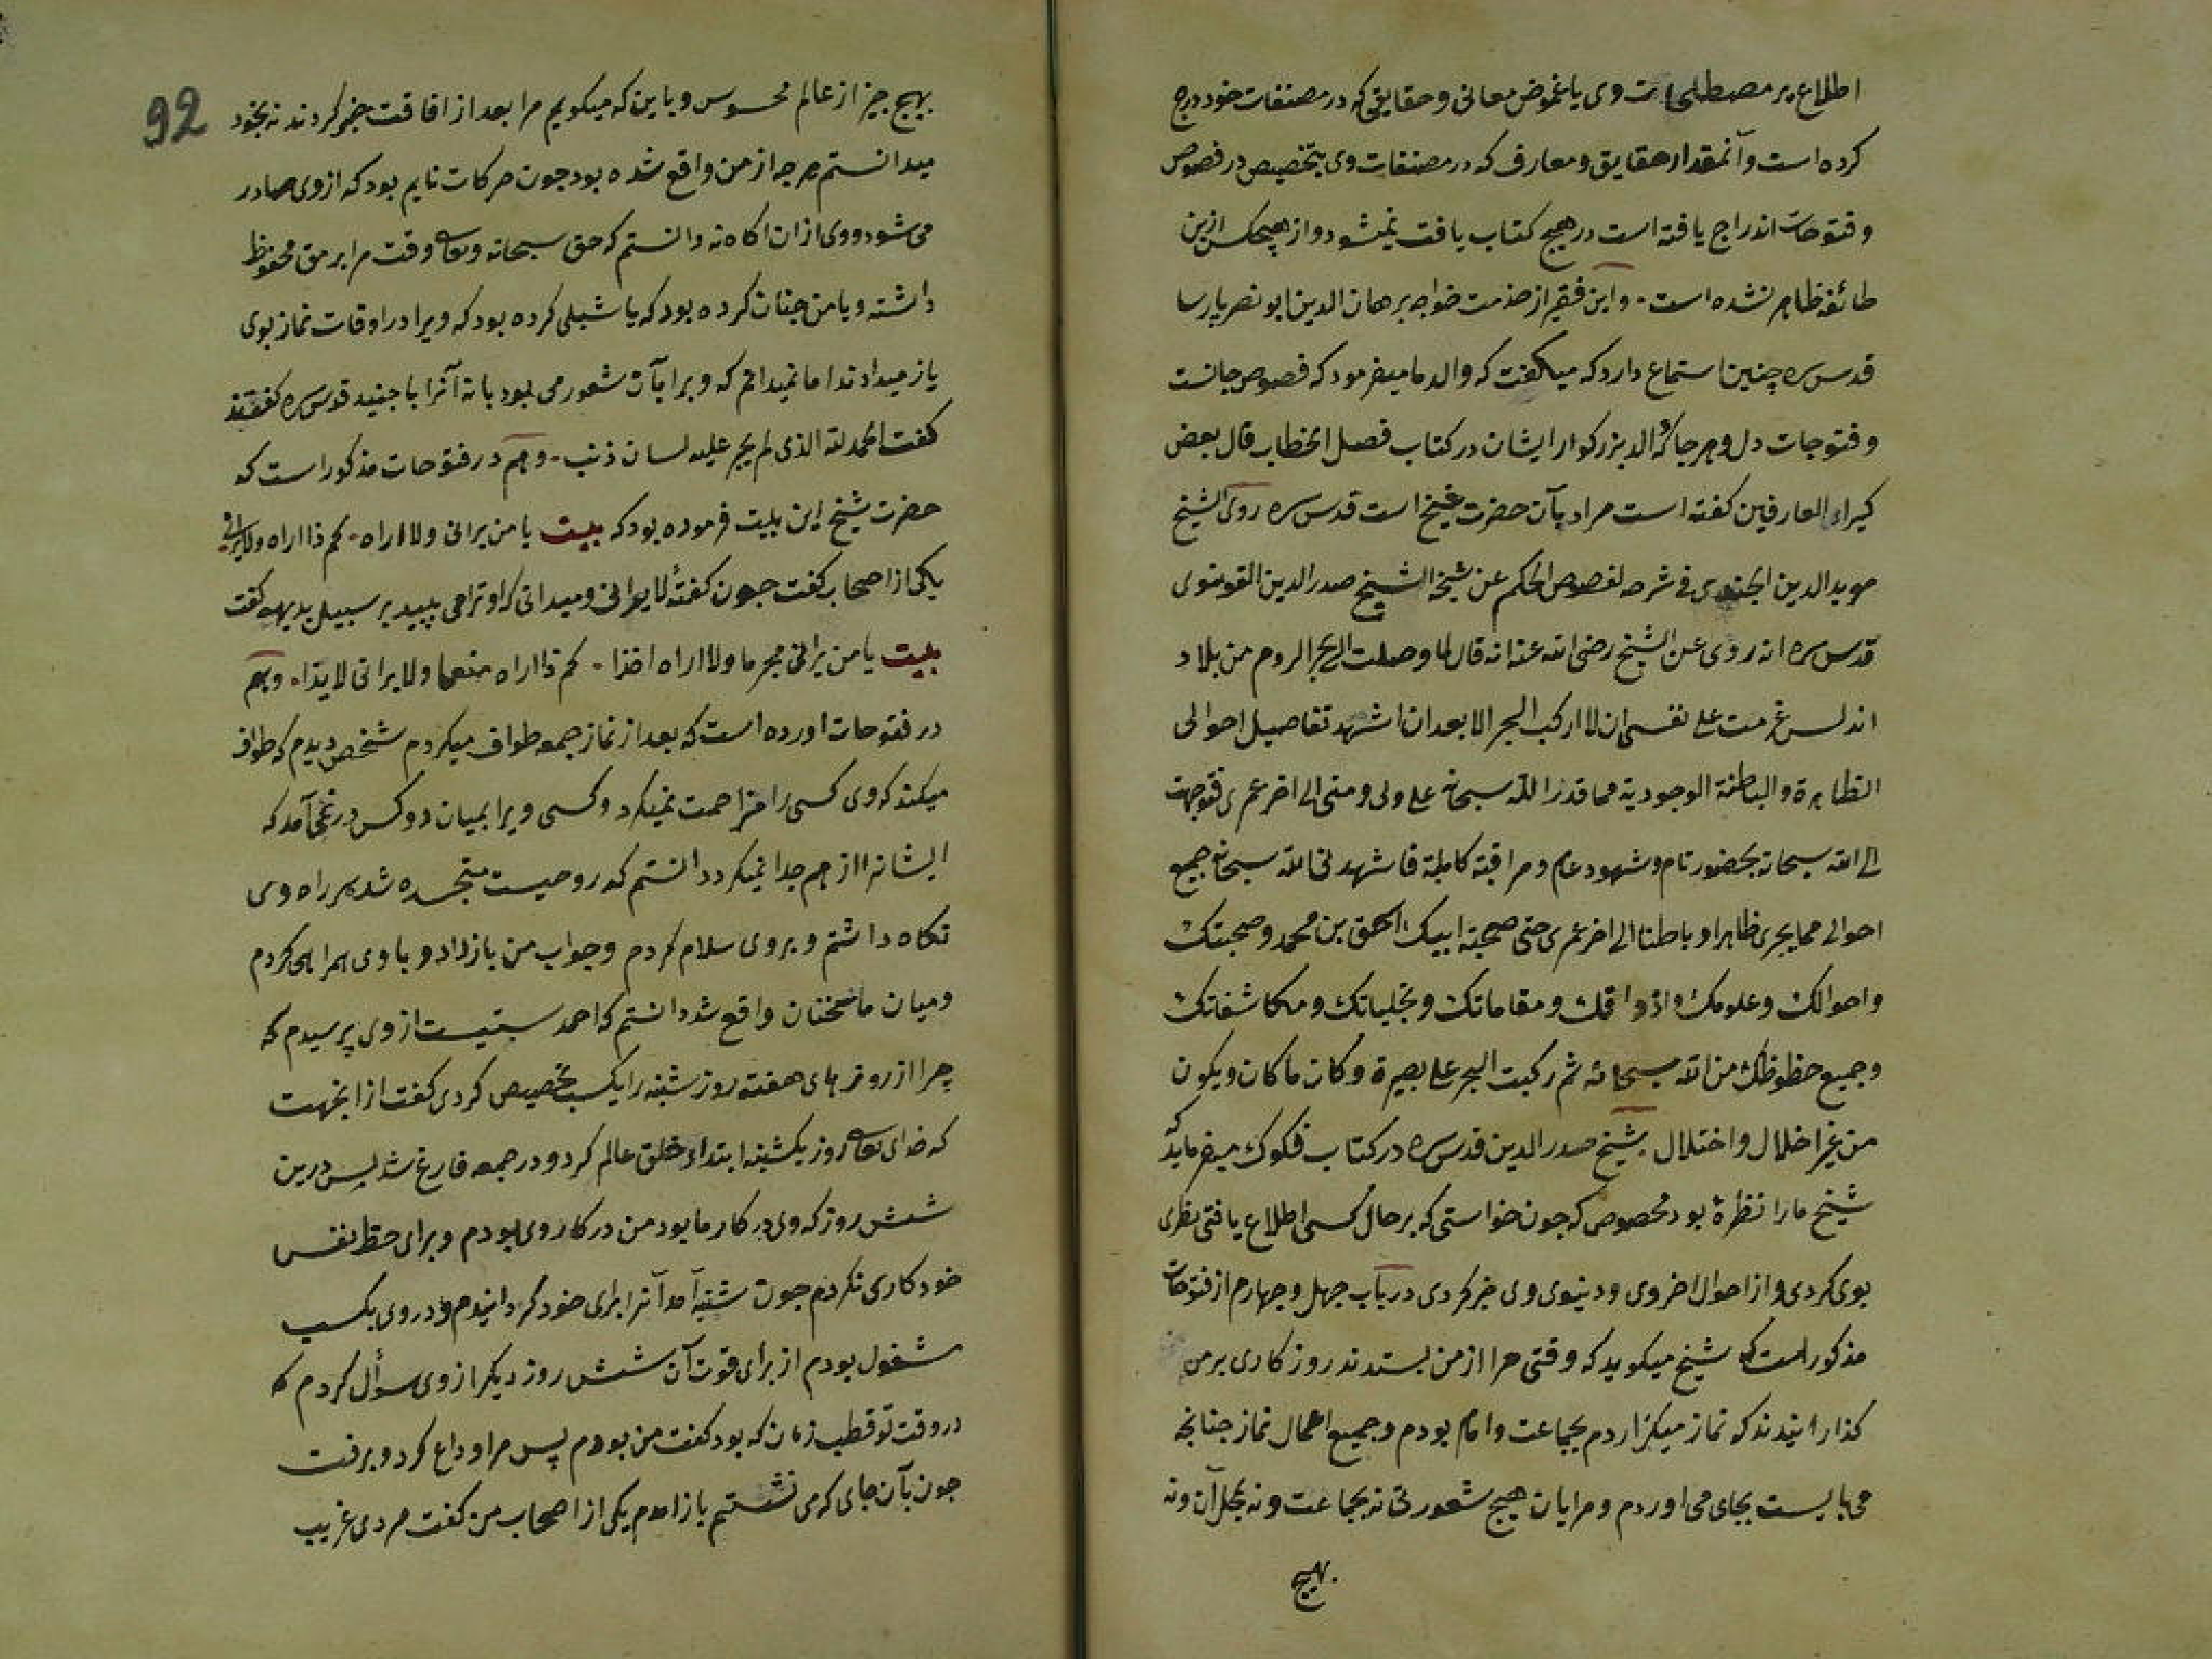 اطلاع بر مصطلحات وی یا غموض معانی و حقایقی که در مصنفات خود درج
کرده است و آنمقدار حقایق و معارف که در مصنفات وی بتخصیص در فصوص
و فتوحات اندراج یافته است در هیچ کتاب یافت نمیشود و از هیچکس ازین
طائفه ظاهر نشده است. و این فقیر از خدمت خواجه برهان الدین ابو نصر پارسا
قدس سره چنین استماع دارد که میکفت که والد ما میفرمود که فصوص جانست
و فتوحات دل و هر جا که والد بزرکوار ایشان در کتاب فصل الخطاب قال بعض
کبراء العارفین کفته است مراد بآن حضرت شیخ است قدس سره روی الشیخ
موید الدین الجندی فی شرحه لفصوص الحکم عن شیخه الشیخ صدر الدین القونوی
قدس سره انه روی عن الشیخ رضی الله عنه انه قال لما وصلت الی بحر الروم من بلاد
اندلس عزمت علی نفسی ان لا ارکب البحر الا بعد ان اشهد تفاصیل احوالی
الظاهرة والباطنة الوجودیة مما قدر الله سبحانه علی ولی و منی الی اخر عمری فتوجهت
الی الله سبحانه بحضور تام و شهود عام و مراقبة کاملة فاشهدنی الله سبحانه جمیع
احوالی مما یجری ظاهرا و باطنا الی اخر عمری حتی صحبة ابیک اسحق بن محمد و صحبتک
و احوالک و علومک و اذواقک و مقاماتک و تجلیاتک و مکاشفاتک
و جمیع حظوظک من الله سبحانه ثم رکبت البحر علی بصیرة و کان ما کان و یکون
من غیر اخلال و اختلال. شیخ صدر الدین قدس سره در کتاب فکوک میفرماید که
شیخ ما را نظرۀ بود مخصوص که جون خواستی که بر حال کسی اطلاع یافتی نظری
بوی کردی و از احوال اخروی و دنیوی وی خبر کردی در باب جهل و جهارم از فتوحات
مذکور است که شیخ میکوید که وقتی مرا از من بستدند روزکاری بر من
کذرانیدند که نماز میکزاردم بجماعت و امام بودم و جمیع اعمال نماز جنانجه
می بایست بجای می اوردم و مرا بان هیچ شعور نی نه بجماعت و نه بمحل آن و نه
بهیج
92
بهیج جیز از عالم محسوس و باین که میکویم مرا بعد از افاقت خبر کردند نه بخود
میدانستم هر جه از من واقع شده بود جون حرکات نایم بود که از وی صادر
می شود و وی از ان اکاه نه دانستم که حق سبحانه وتعالی وقت مرا بر من محفوظ
داشته و با من جنان کرده بود که با شبلی کرده بود که ویرا در اوقات نماز بوی
باز میدادند اما نمیدانم که ویرا بآن شعور می بود یا نه آنرا با جنید قدس سره کفتند
کفت الحمد لله الذی لم یجر علیه لسان ذنب. و هم در فتوحات مذکور است که
حضرت شیخ این بیت فرموده بود که بیت یا من یرانی ولا اراه. کم ذا اراه ولا یرانی
یکی از اصحاب کفت جون کفتۀ لا یرانی و میدانی که او ترا می بیند بر سبیل بدیهه کفت
بیت یا من یرانی مجرما ولا اراه اخذا. کم ذا اراه منعما ولا یرانی لایذا. وهم
در فتوحات اورده است که بعد از نماز جمعه طواف میکردم شخصی دیدم که طواف
میکند که وی کسی را مزاحمت نمیکرد و کسی ویرا بمیان دو کس در می آمد که
ایشانرا از هم جدا نمیکرد دانستم که روحیست متجسده شد بر سر راه وی
نکاه داشتم و بر وی سلام کردم و جواب من باز داد و با وی همراهی کردم
و میان ما سخنان واقع شد دانستم که احمد سبتیست از وی پرسیدم که
چرا از روز های هفته روز شنبه را بکسب تخصیص کردی کفت از انجهت
که خدای تعالی روز یکشنبه ابتداء خلق عالم کرد و در جمعه فارغ شد پس درین
شش روز که وی در کار ما بود من در کار وی بودم و برای حظ نفس
خود کاری نکردم جون شنبه آمد آنرا برای خود کردانیدم و در وی بکسب
مشغول بودم از برای قوت آن شش روز دیکر از وی سؤال کردم که
در وقت تو قطب زمان که بود کفت من بودم پس مرا وداع کرد و برفت
جون بآن جای که می نشستم باز امدم یکی از اصحاب من کفت مردی غریب